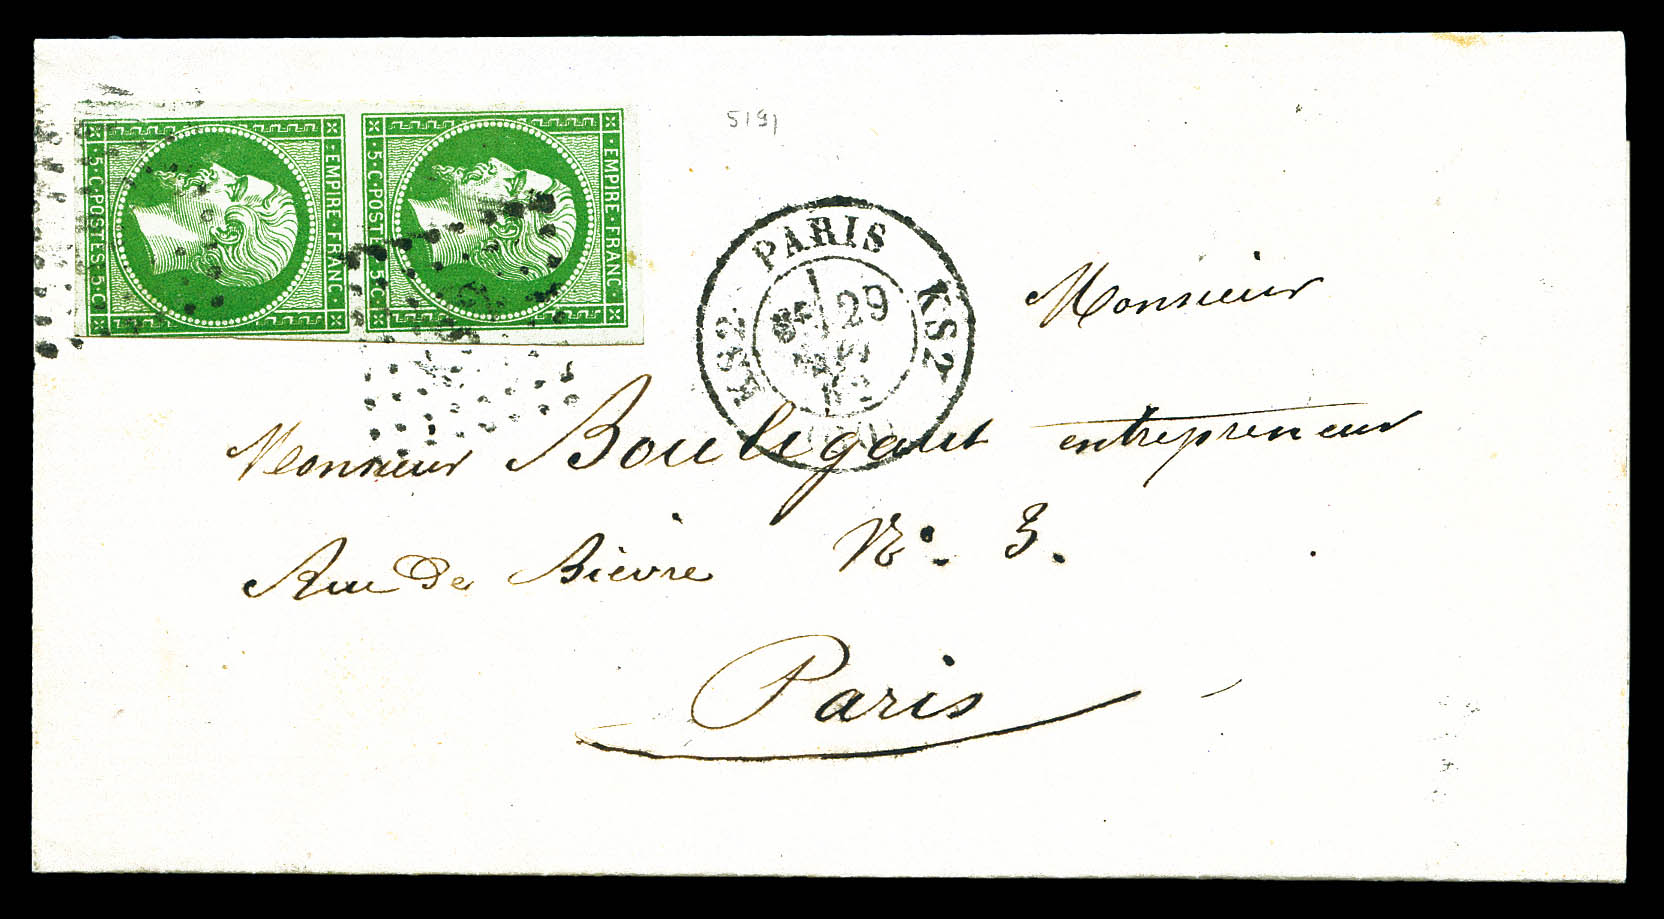 EMPIRE·FRANC·
·5·C·POSTES·5·C·
EMPIRE·FRANC·
·5·C·POSTES·5·C·
5191
PARIS
KS2 KS2
29
Monsieur
Monsieur Bouligaut entrepreneur
Rue De Bièvre N° 3.
Paris